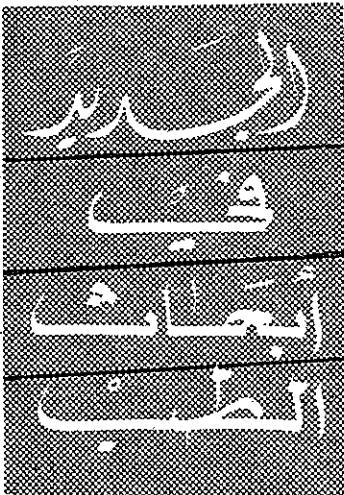 الجديد
في
أبحاث
الطب